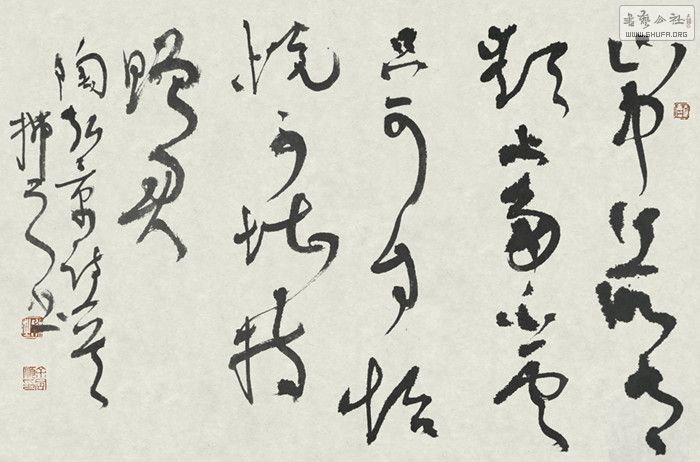 書藝公社
WWW.SHUFA.ORG
山中何所有
嶺上多白雲
只可自怡
悦不堪持
贈君
陶弘景詩